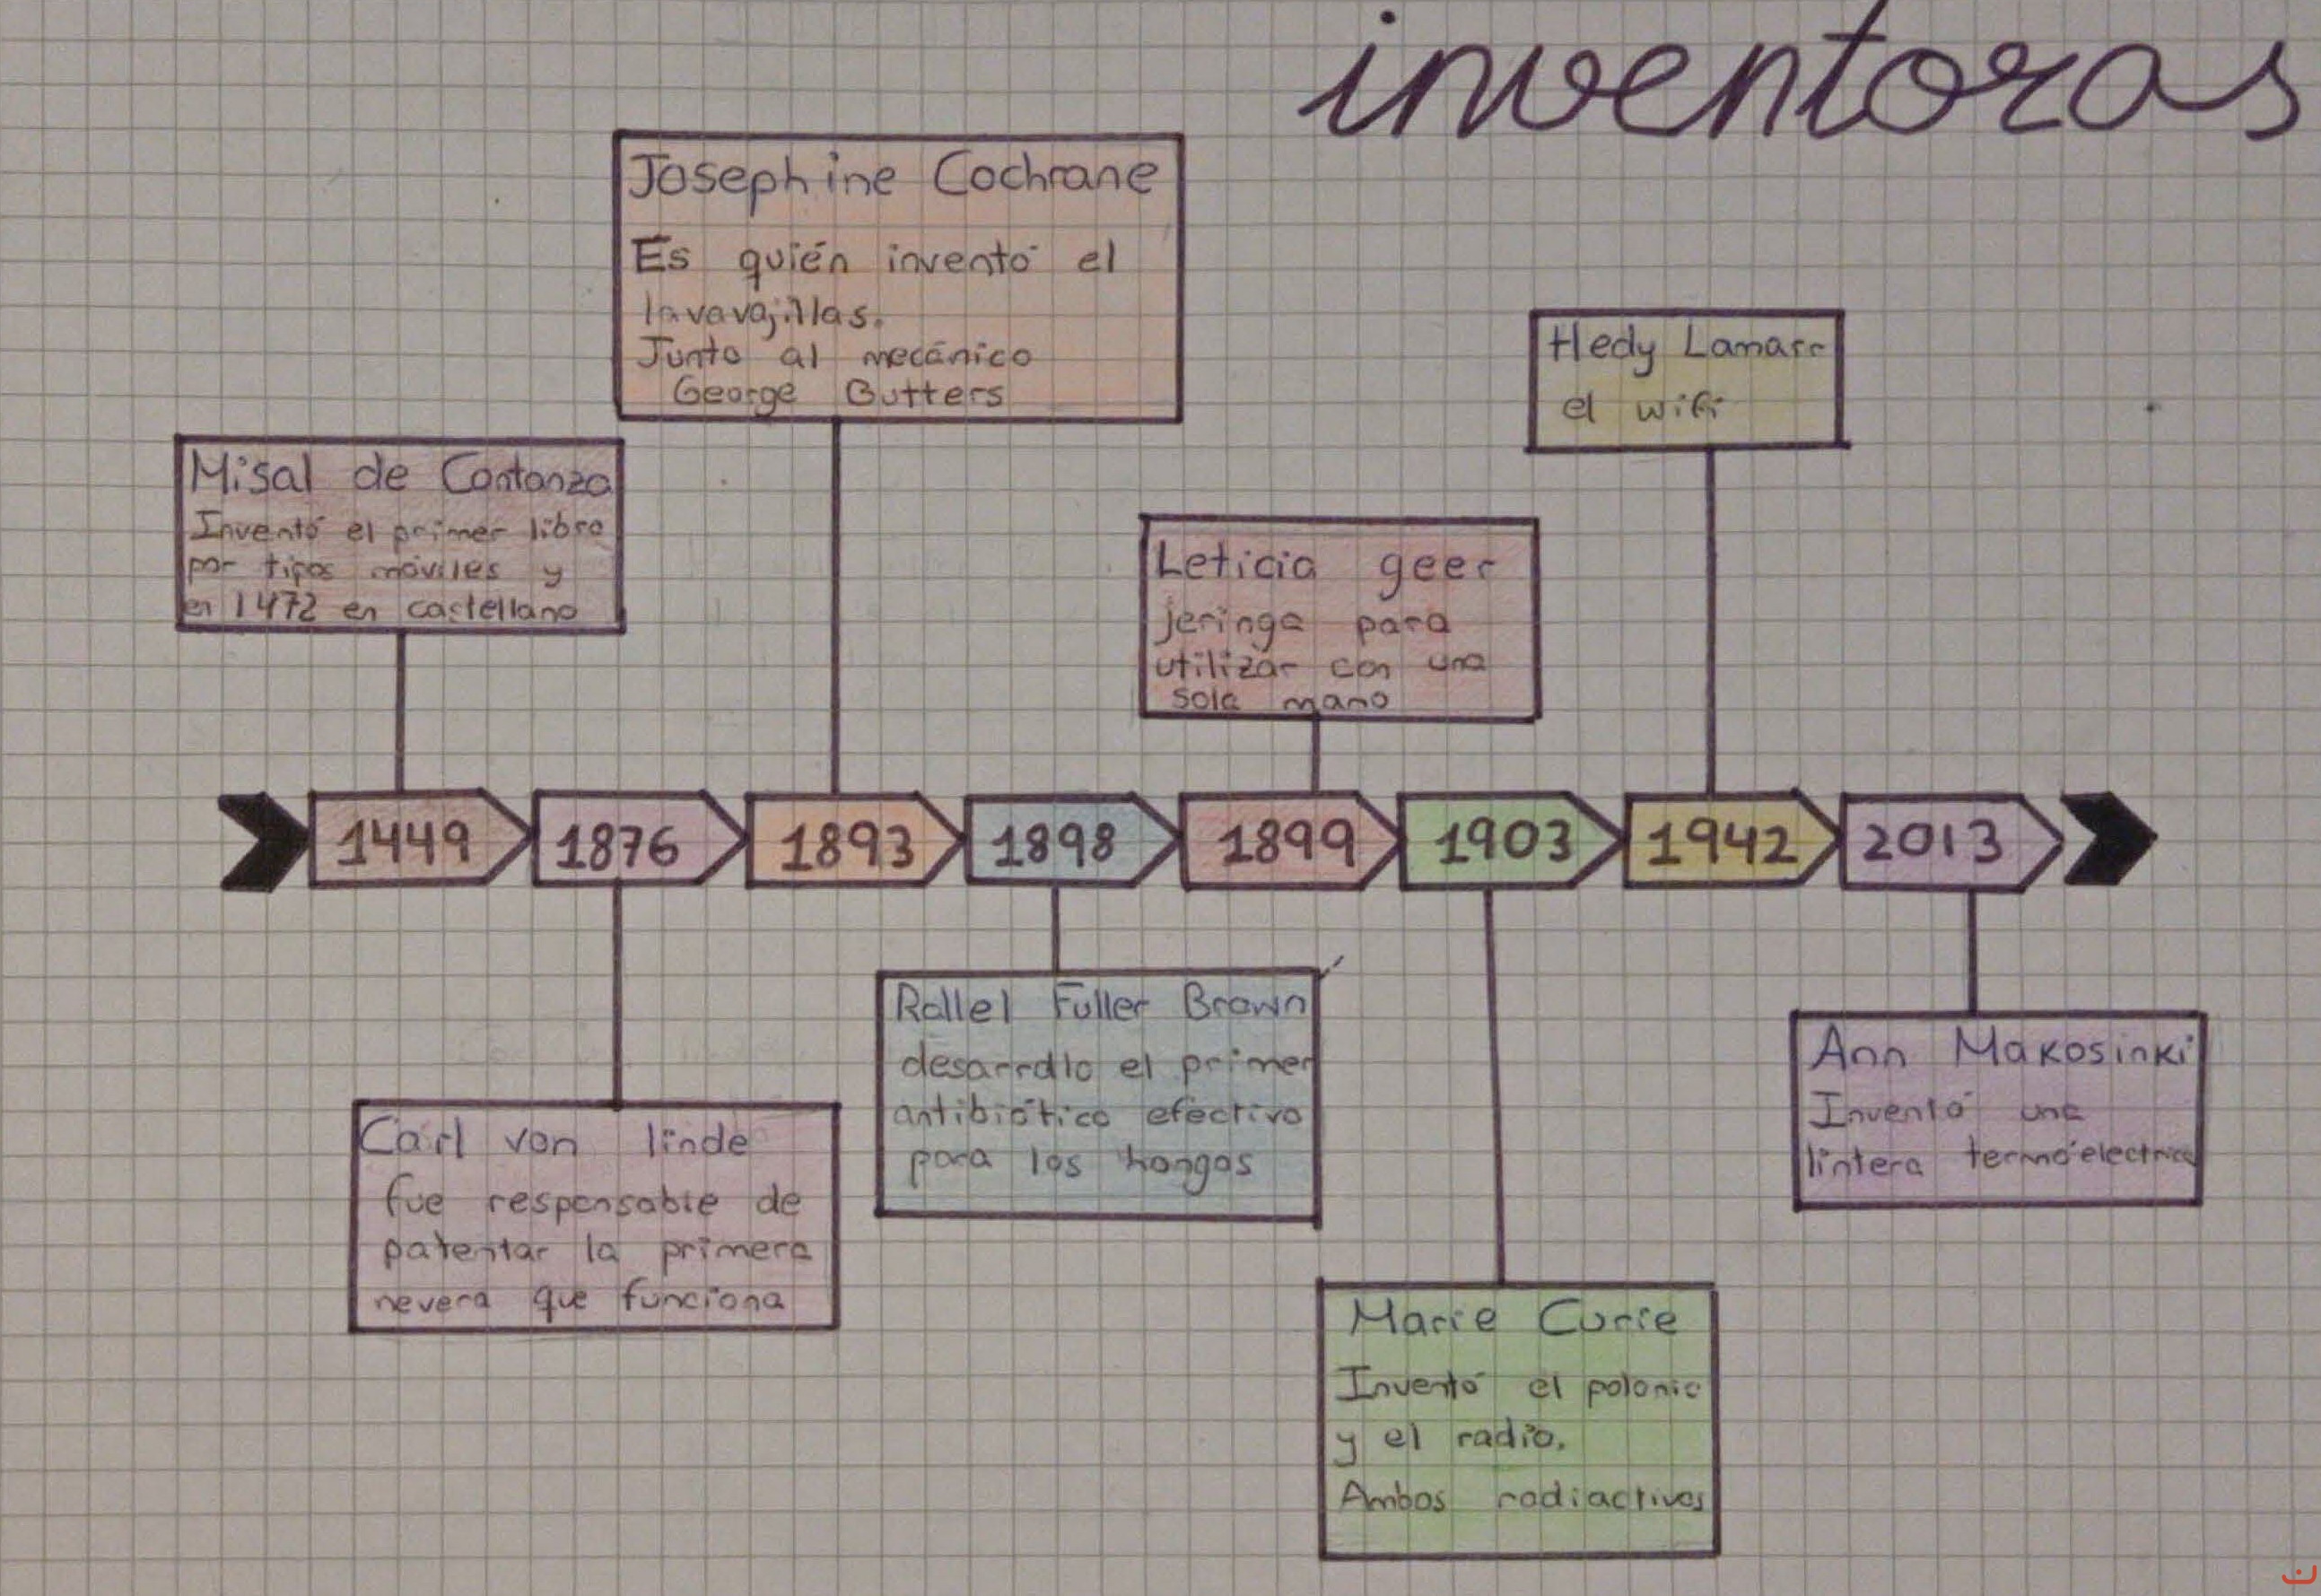 inventoras
Josephine Cochrane
Es quién inventó el
lavavajillas.
Junto al mecánico
George Butters
Hedy Lamarr
el wifi
Misal de Contanza
Inventó el primer libro
por tipos móviles y
en 1472 en castellano
Leticia geer
jeringa para
utilizar con una
sola mano
1449
1876
1893
1898
1899
1903
1942
2013
Carl von linde
fue responsable de
patentar la primera
nevera que funciona
Rallel Fuller Brown
desarrollo el primer
antibiótico efectivo
para los hongos
Marie Curie
Inventó el polonio
y el radio.
Ambos radiactivos
Ann Makosinki
Inventó una
lintera termóelectrica